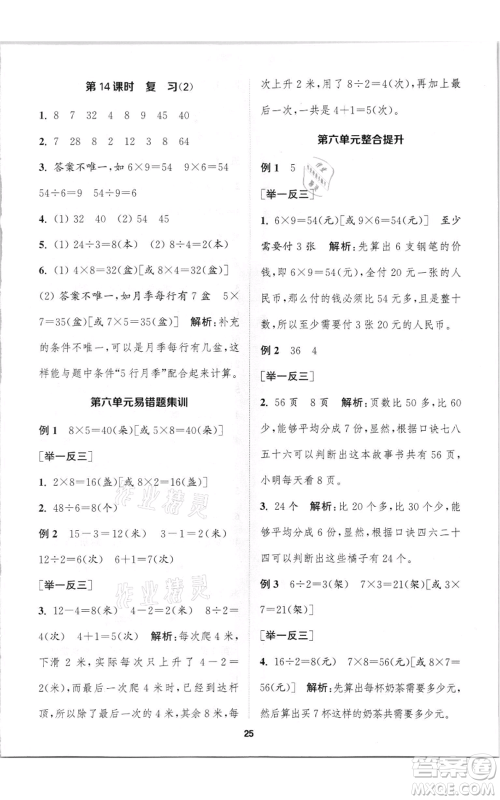 第14课时 复 习(2)
1. 8 7 32 4 8 9 45 40
2. 7 28 8 2 64 8 5 40
3. 答案不唯一,如 6×9=54 9×6=54
54÷6=9 54÷9=6
4. (1) 32 (2) 4
5. (1) 24÷3=8(本) (2) 18÷9=2(本)
6. (1) 4×8=32(盆)[或 8×4=32(盆)]
(2) 答案不唯一,如月季每行有7盆 5×
7=35(盆)[或 7×5=35(盆)] 解析:补充
的条件不唯一,可以是月季每行有几盆,这
样能与题中条件“5行月季”配合起来计算。
第六单元易错题集训
例1 8×5=40(朵)[或 5×8=40(朵)]
[举一反三]
1. 2×8=16(盏)[或 8×2=16(盏)]
2. 48÷6=8(个)
例2 15-3=12(米) 3-1=2(米)
12÷2=6(次) 6+1=7(次)
[举一反三]
3. 12-4=8(米) 4-2=2(米) 8÷2=
4(次) 4+1=5(次) 解析:每次爬4米,
下滑2米,每次实际上升了4-2=2(米),
最后一次爬4米后,已经可以到达木杆
顶,不需要再滑下来了。剩下的8米,每
次上升2米,用了8÷2=4(次),再加上
最后一次,一共是4+1=5(次)。
第六单元整合提升
例1 5
[举一反三]
1. 6×9=54(元)[或 9×6=54(元)] 至少
需要付3张 解析:先算出6支钢笔的价
钱,6×9=54(元)[或 9×6=54(元)],所
以付的钱必须比54元多,所以至少要付
3张20元的人民币,因此要付3张20元
的人民币。
例2 36 4
[举一反三]
2. 56页 8页 解析:先找出比50多,比
60少,能够平均分成7份的数,根据口诀七
八五十六可以判断出这本故事书共有56页,
小明每天看8页。
3. 24个 解析:先找出比20多,比30少,
能够平均分成6份的数,根据口诀四六二十四
可以判断出这些橘子可能有24个。
例3 6÷2=3(架) 7×3=21(架)[或 3×
7=21(架)]
[举一反三]
4. 16÷2=8(元) 7×8=56(元)[或 8×7
=56(元)] 解析:先算出每杯奶茶需要多少元,
然后就可以计算出7杯的奶茶需要多少元。
25